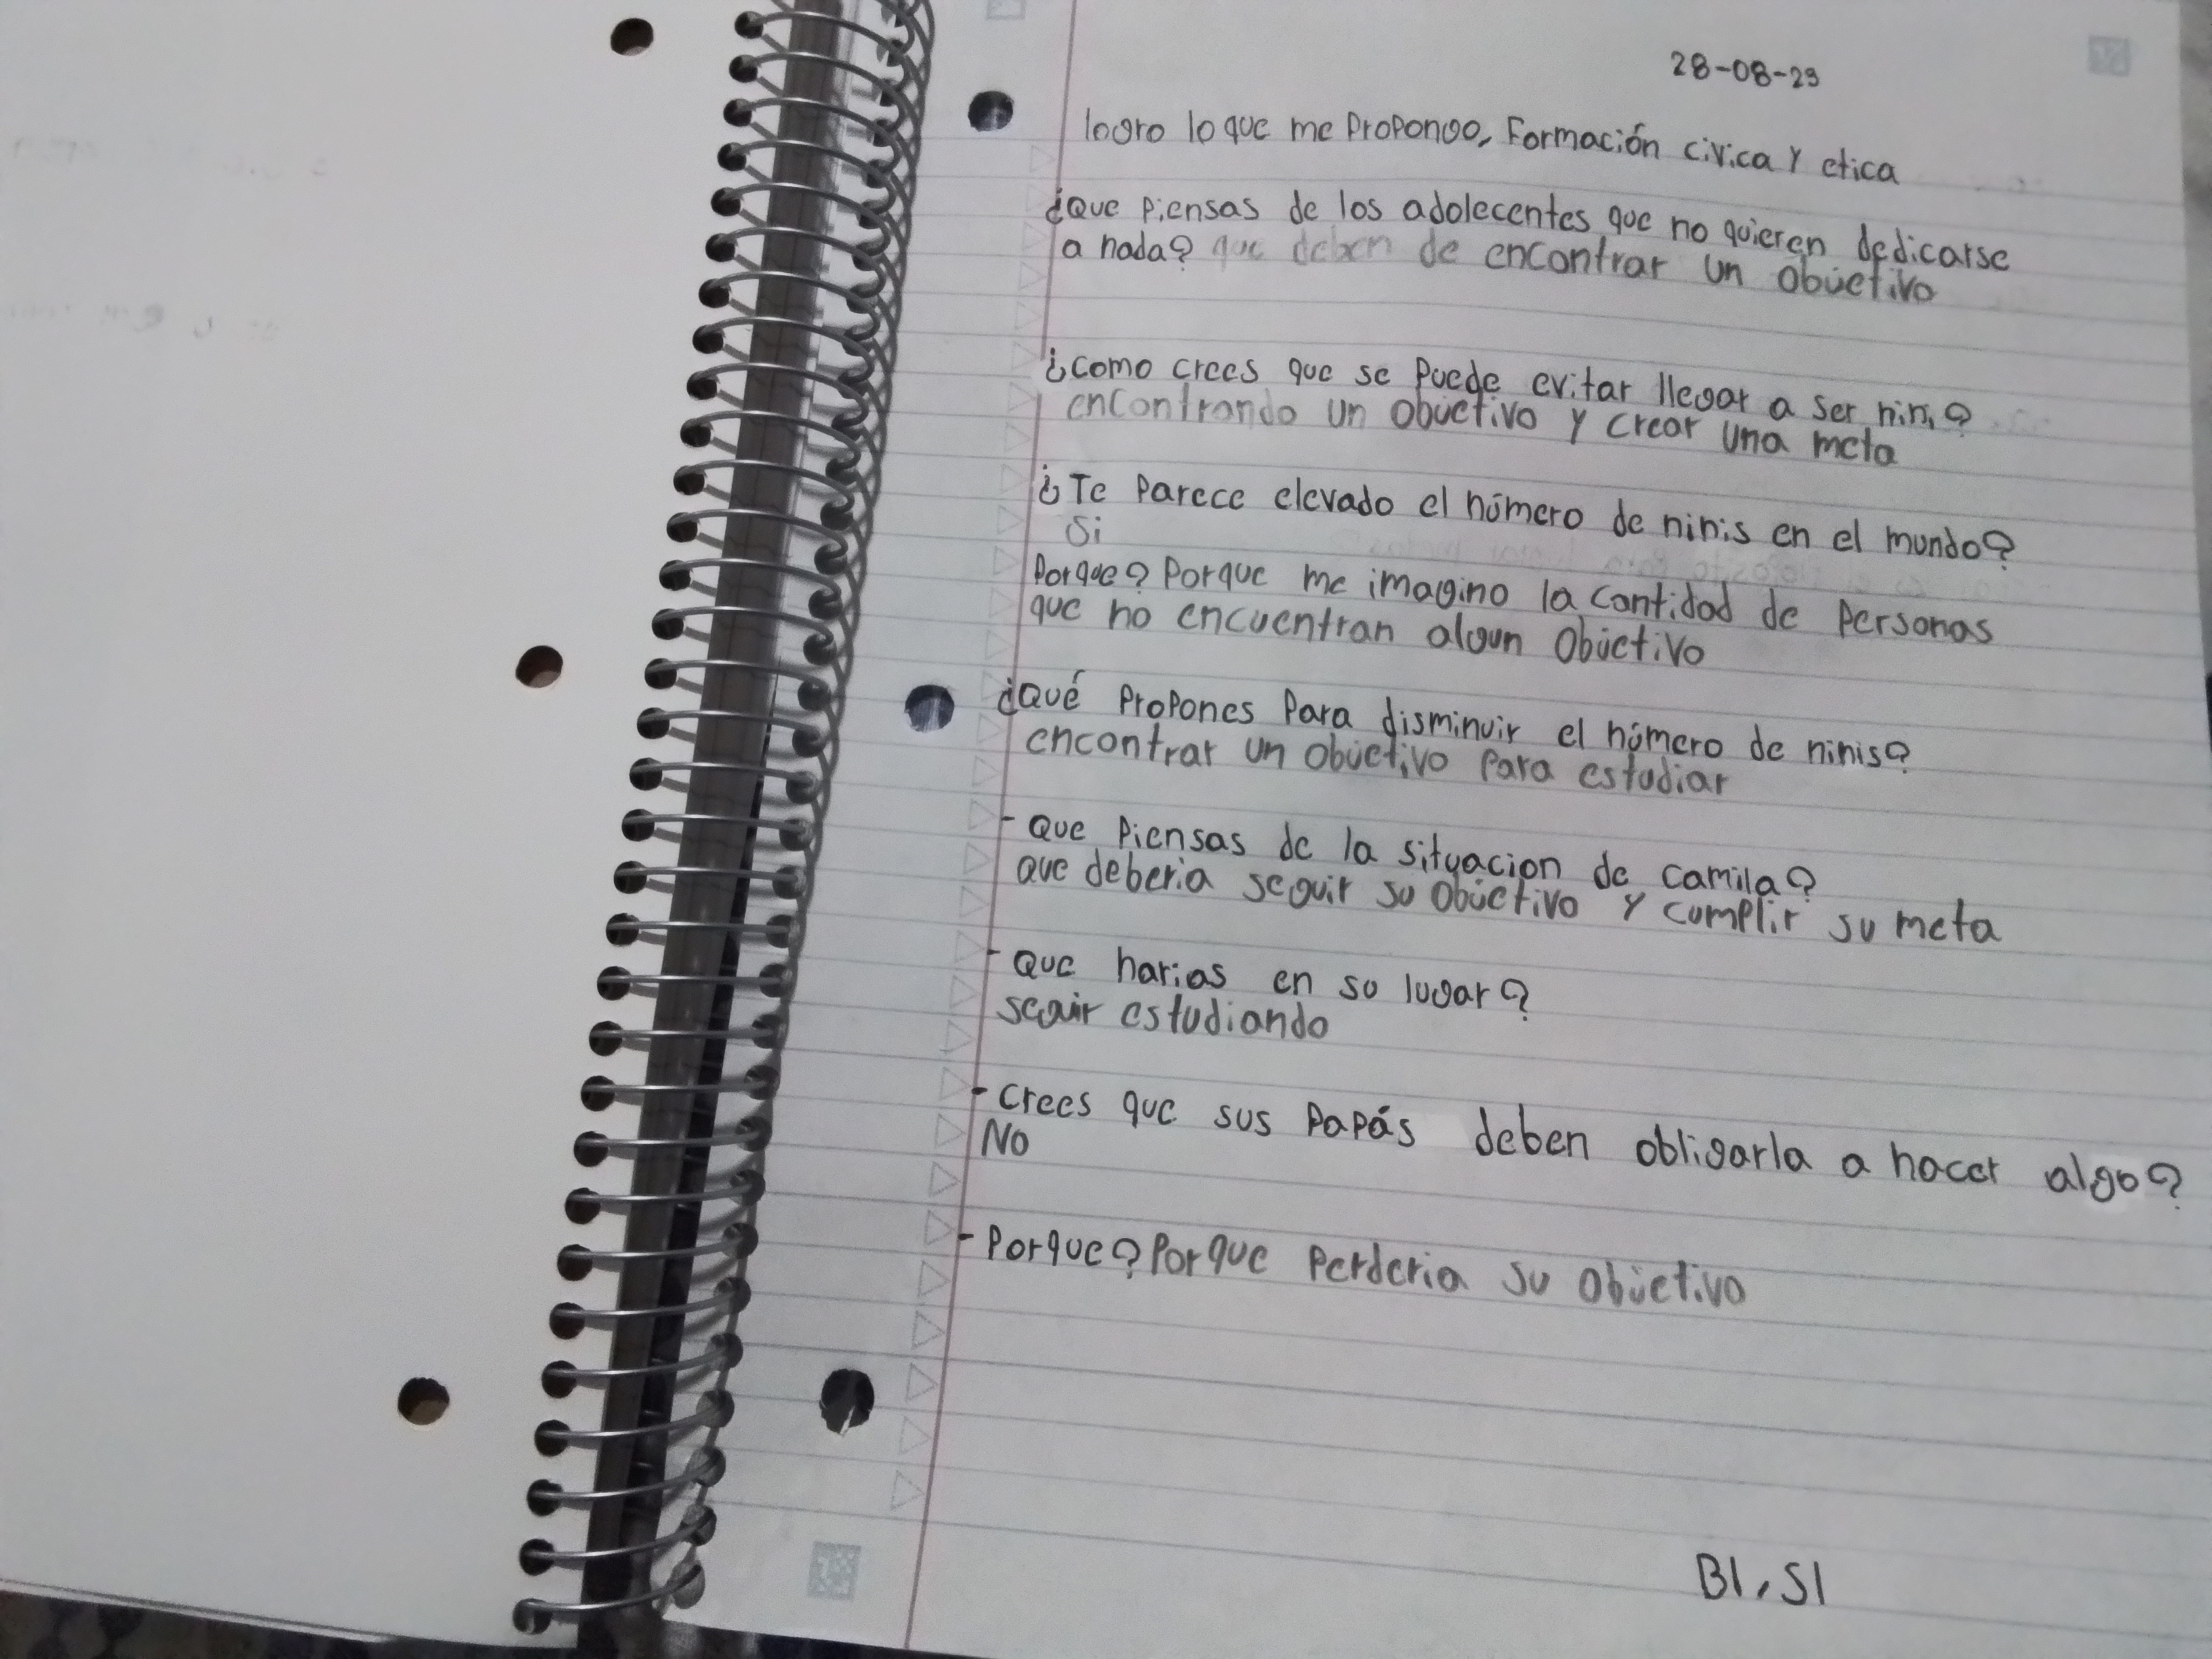 28-08-23
logro lo que me propongo, Formación civica y etica
¿Que piensas de los adolecentes que no quieren dedicarse
a nada? que deben de encontrar un objetivo
¿como crees que se puede evitar llegar a ser nini?
encontrando un objetivo y crear una meta
¿Te parece elevado el número de ninis en el mundo?
Si
Porque? Porque me imagino la cantidad de personas
que no encuentran algun objetivo
¿Qué propones para disminuir el número de ninis?
encontrar un objetivo para estudiar
- Que piensas de la situacion de camila?
que deberia seguir su objetivo y cumplir su meta
- Que harias en su lugar?
seguir estudiando
- Crees que sus papás deben obligarla a hacer algo?
No
- Porque? Porque perderia su objetivo
B1, S1